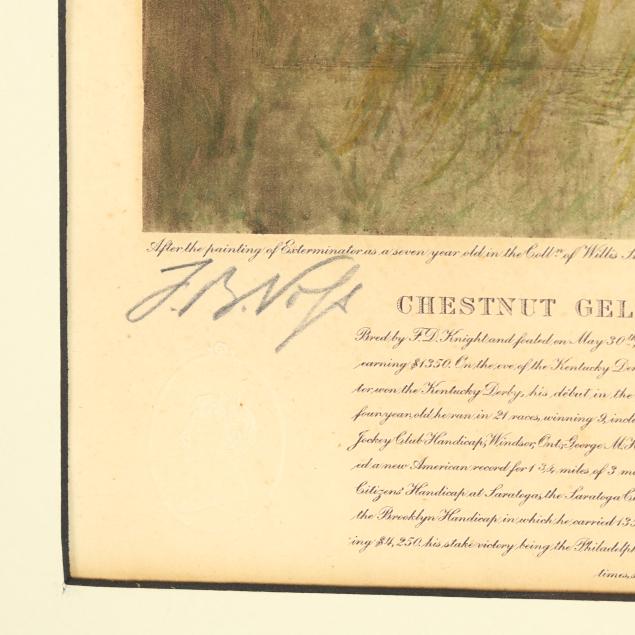 After the painting of Exterminator as a seven year old in the Coll.n of Willis
F. B. Voss
CHESTNUT GEL
Bred by F. D. Knight and foaled on May 30th
earning $1350. On the eve of the Kentucky Der
tor won the Kentucky Derby, his début in the
four year old he ran in 21 races, winning 9, inclu
Jockey Club Handicap, Windsor, Ont; George M. H
ed a new American record for 1 3/4 miles of 3 m
Citizens' Handicap at Saratoga, the Saratoga Cu
the Brooklyn Handicap in which he carried 135
ing $4,250. his stake victory being the Philadelph
times,